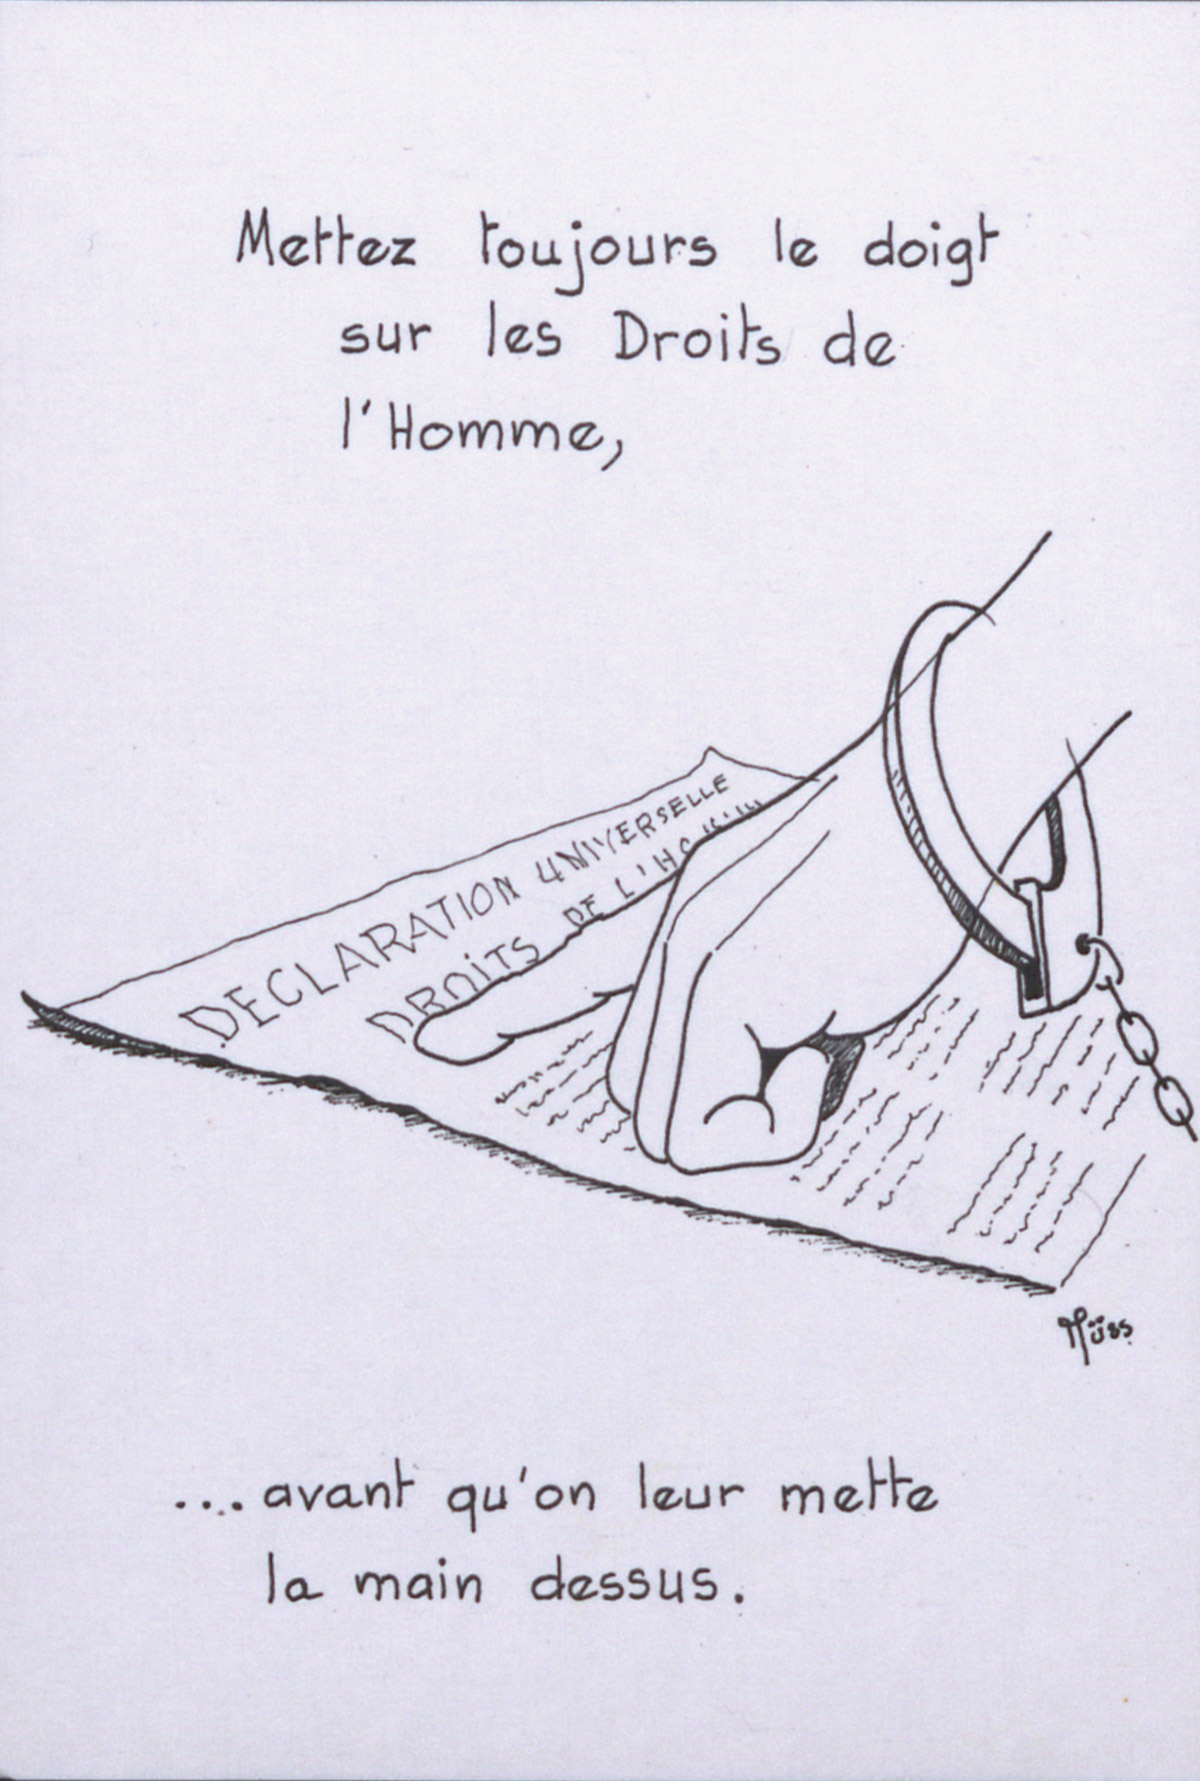 Mettez toujours le doigt
sur les Droits de
l'Homme,
DECLARATION UNIVERSELLE
DROITS DE L'HO
Müss
...avant qu'on leur mette
la main dessus.